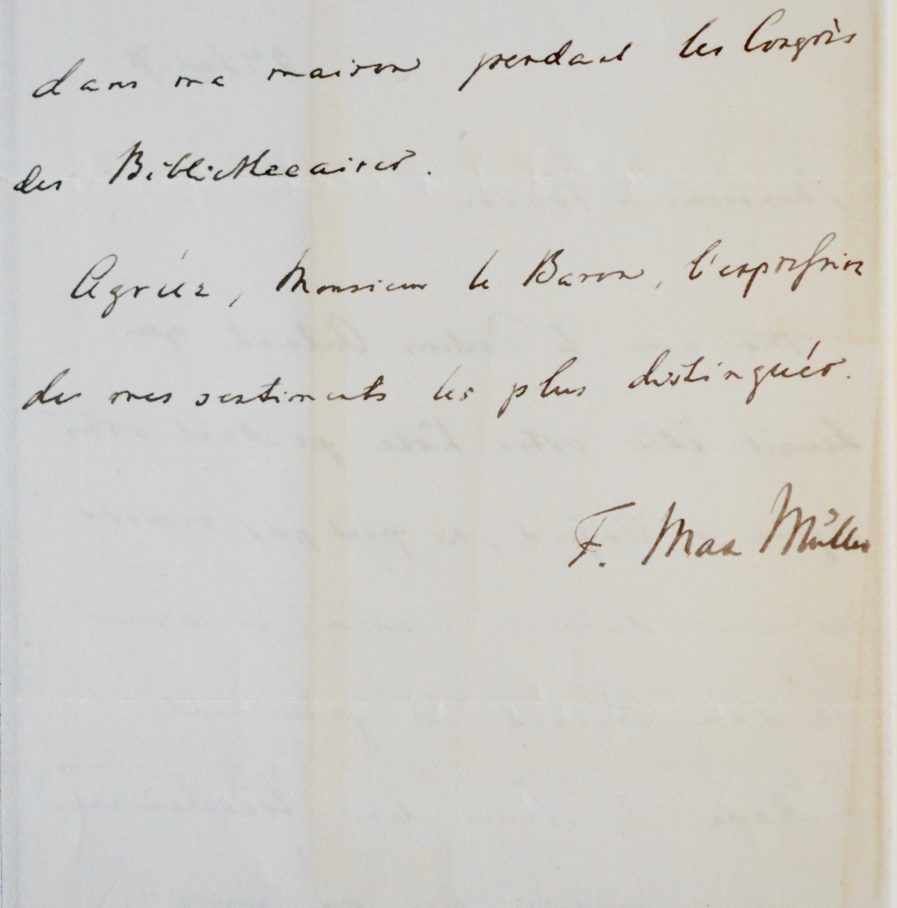 dans ma maison pendant les Congrès
des Bibliothecaires.
Agréez, Monsieur le Baron, l'expression
des mes sentiments les plus distingués.
F. Max Müller